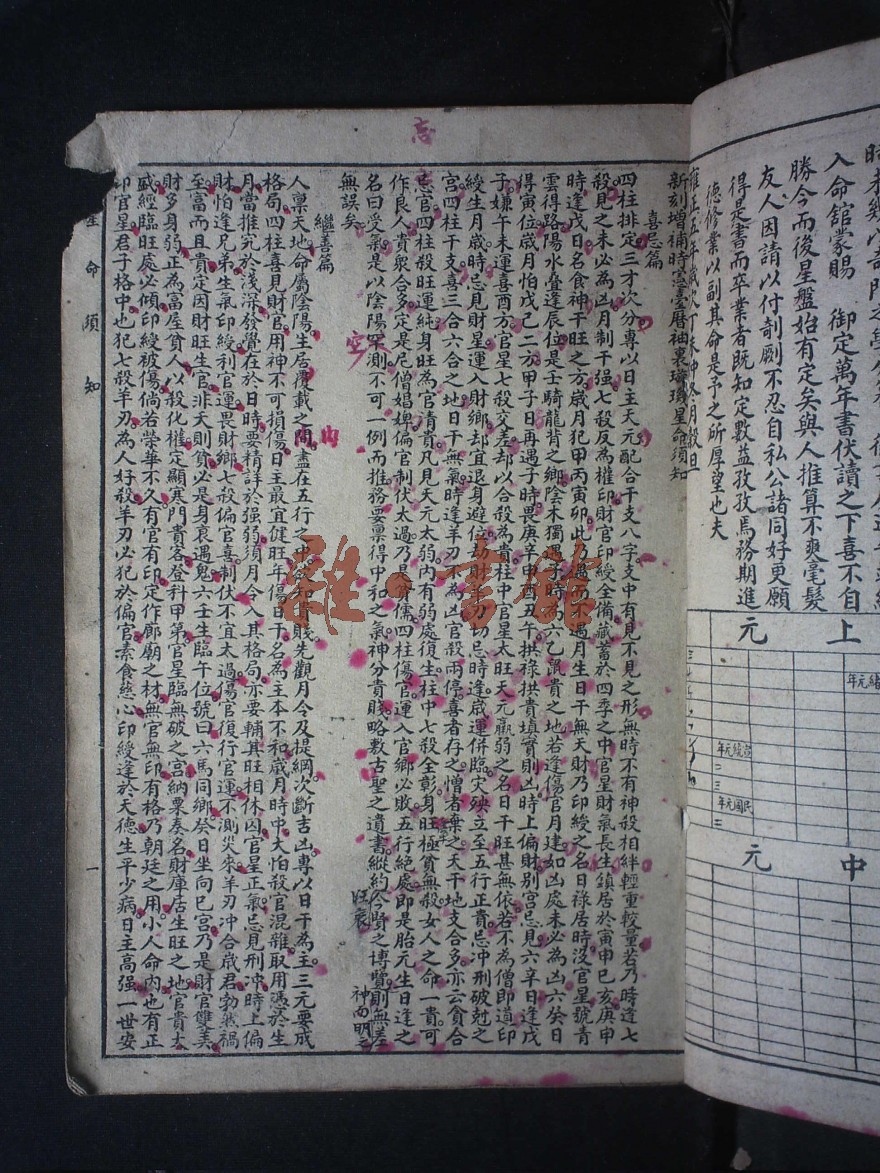 入命舘蒙賜　御定萬年書伏讀之下喜不自
勝今而後星盤始有定矣與人推算不爽毫髮
友人因請以付剞劂不忍自私公諸同好更願
得是書而卒業者既知定數益孜孜焉務期進
德修業以副其命是予之所厚望也夫
雍正五年歲次丁未仲冬月穀旦
上元
緒元年
宣統元年
二
三
民國元年
二
中元
忌
新刻增補時憲臺曆袖裏璇璣星命須知
喜忌篇
四柱排定三才次分專以日主天元配合干支八字支中有見不見之形無時不有神殺相絆輕重較量若乃時逢七
殺見之未必為凶月制干强七殺反為權印財官印綬全備藏蓄於四季之中官星財氣長生鎮居於寅申巳亥庚申
時逢戊日名食神干旺之方歲月犯甲丙寅卯此乃遇而不遇月生日干無天財乃印綬之名日祿居時沒官星號青
雲得路陽水叠逢辰位是壬騎龍背之鄉陰木獨遇子時為六乙鼠貴之地若逢傷官月建如凶處未必為凶六癸日
得寅位歲月怕戊己二方甲子日再遇子時畏庚辛申酉丑午拱祿拱貴填實則凶時上偏財别宮忌見六辛日逢戊
子嫌午未運喜西方官星七殺交差却以合殺為貴柱中官星太旺天元羸弱之名日干旺甚無依若不為僧即道印
綬生月歲時忌見財星運入財鄉却宜退身避位劫財羊刃切忌時逢歲運併臨灾殃立至五行正貴忌冲刑破尅之
宮四柱干支喜三合六合之地日干無氣時逢羊刃不為凶官殺兩停喜者存之憎者棄之天干地支合多亦云貪合
忘官四柱殺旺運純身旺為官清貴凡見天元太弱內有弱處復生柱中七殺全彰身旺極貧無殺女人之命一貴可
作良人貴衆合多定是尼僧娼婢偏官制伏太過乃是貧儒四柱傷官運入官鄉必敗五行絕處即是胎元生日逢之
名曰受氣是以陰陽罕測不可一例而推務要禀得中和之氣神分貴賤略敷古聖之遺書縱約今賢之博覽則無差
無誤矣
繼善篇
人禀天地命屬陰陽生居覆載之間盡在五行之中欲知貴賤先觀月令及提綱次斷吉凶專以日干為主三元要成
格局四柱喜見財官用神不可損傷日主最宜健旺年傷日干名為主本不和歲月時中大怕殺官混雜取用憑於生
月當推究於淺深發覺在於日時要精詳於强弱須月令入其格局亦要輔其旺相休囚官星正氣忌見刑冲時上偏
財怕逢兄弟生氣印綬利官運畏財鄉七殺偏官喜制伏不宜太過傷官復行官運不測災來羊刃冲合歲君勃然禍
至富而且貴定因財旺生官非夭則貧必是身衰遇鬼六壬生臨午位號曰六馬同鄉癸日坐向巳宮乃是財官雙美
財多身弱正為富屋貧人以殺化權定顯寒門貴客登科甲第官星臨無破之宮納粟奏名財庫居生旺之地官貴太
盛經臨旺處必傾印綬被傷倘若榮華不久有官有印定作廊廟之材無官無印有格乃朝廷之用小人命內也有正
印官星君子格中也犯七殺羊刃為人好殺羊刃必犯於偏官素食慈心印綬逢於天德生平少病日主高强一世安
旺衰
神而明之
星命須知
一
雜·書館